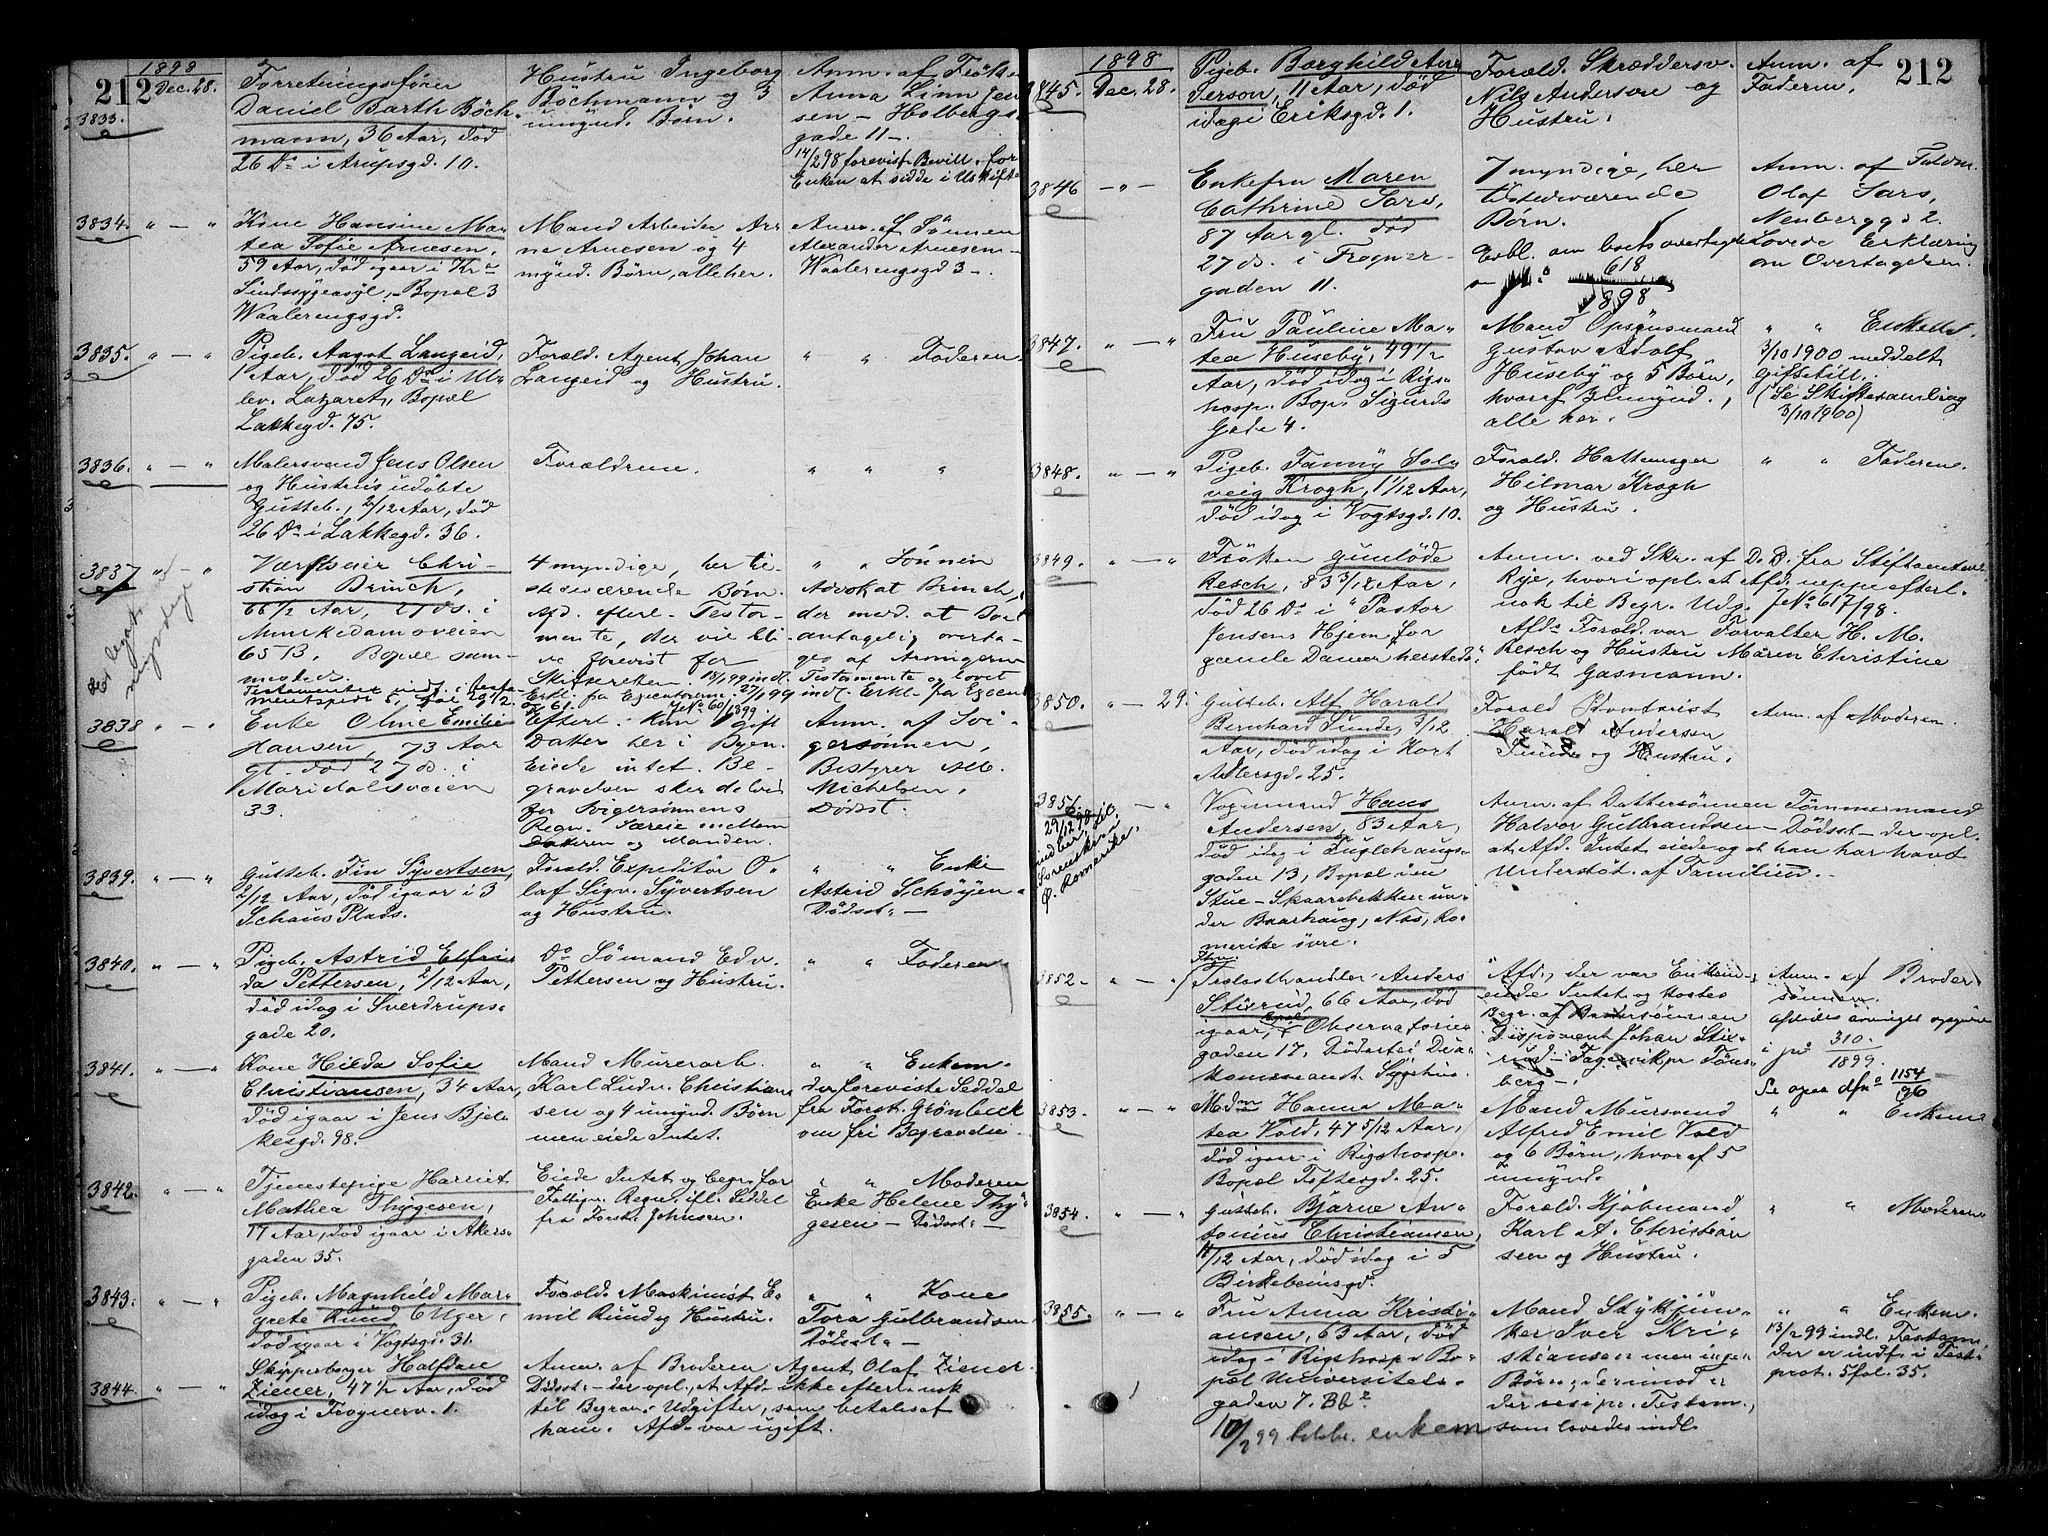 212
1898
Dec. 28.
3833.
Forretningsfører
Daniel Barth Böch-
mann, 36 Aar, död
26 Ds i Arupsgd. 10.
Hustru Ingeborg
Böchmann og 3
umynd. Börn.
Anm. af Frök.
Anna Linn Jen
sen - Holbergs
gade 11 -
14/2 98 forevist Bevill. for
Enken at sidde i Uskift
3834. " — "
Kone Hansine Ma-
tea Sofie Arnesen,
59 Aar, död igaar i Kra
Sindssygeasyl, - Bopæl 3
Waalerengsgd.
Mand Arbeider Ar
ne Arnesen og 4
mynd. Börn, alle her.
Anm. af Sønnen
Alexander Arnesen -
Waalerengsgd 3 -
3835. " — "
Pigeb. Aagot Langeid,
1 Aar, död 26 Ds i Ul-
lev. Lazaret, Bopæl
Lakkegd. 75.
Foræld. Agent Johan
Langeid og Hustru.
" " Faderen.
3836. " — "
Malersvend Jens Olsen
og Hustrus udöbte
Gutteb., 2/12 Aar, död
26 Ds i Lakkegd. 36.
Forældrene.
" " "
3837 " — "
Værftseier Chri-
stian Brinch,
66 1/2 Aar, 27 ds. i
Munkedamsveien
65 B, Bopæl sam-
mesteds.
4 myndige, her ti-
stedeværende Börn.
Afd. efterl. Testa-
mente, der vil bli-
ve forevist for
Skifteretten.
" " Sönnen
Advokat Brinch,
der med. at Boet
antagelig overta-
ges af Arvingerne
3838 " — "
Enke Oline Emilie
Hansen, 73 Aar
gl. död 27 ds. i
Maridalsveien
33.
Efterl. kun 1 gift
Datter her i Byen.
Eiede intet. Be-
gravelsen sker delvis
for Svigersönnens
Regn. Særeie mellem
Datteren og Manden.
Anm. af Svi-
gersønnen,
Bestyrer Alb.
Michelsen,
Dödsst.
3839. " — "
Gutteb. Fin Syvertsen,
2/12 Aar, död igaar i 3
Schous Plads.
Foræld. Expeditör O-
laf Sigv. Syvertsen
og Hustru.
" " Enke
Astrid Schöyen -
Dödsst. -
3840. " — "
Pigeb. Astrid Elfri
da Pettersen, 2/12 Aar,
död idag i Sverdrups-
gade 20.
Do Sömand Edv.
Pettersen og Hustru.
" " Faderen.
3841. " — "
Kone Hilda Sofie
Christiansen, 34 Aar,
död igaar i Jens Bjel-
kesgd. 98.
Mand Murerarb.
Karl Ludv. Christian
sen og 4 umynd. Börn
men eiede Intet.
" " Enkem.
der foreviste Seddel
fra Forst. Grönbeck
om fri Begravelse.
3842. " — "
Tjenestepige Harriet
Mathea Thygesen,
17 Aar, död igaar i Akers-
gaden 35.
Eiede Intet og begr. for
Fattigv. Regn. ifl. Seddel
fra Forst. Johnsen.
" " Moderen
Enke Helene Thy
gesen - Dödsst. -
3843. " — "
Pigeb. Magnhild Mar-
grete Ruud, 6 Uger,
död igaar i Vogtsgd. 31.
Foræld. Maskinist E-
mil Ruud og Hustru.
" " Kone
Tora Gulbrandsen
Dödsst. -
3844. " — "
Skipperborger Halfdan
Ziener, 47 1/2 Aar, död
idag i Frognerv. 1.
Anm. af Broderen Agent Olaf Ziener
Dödsst. - der opl. at Afd. ikke efterl. nok
til Begrav. Udgifter, som betales af
ham. Afd. var ugift.
1898
212
3845. Dec. 28.
Pigeb. Borghild An-
derson, 11 Aar, död
idag i Eriksgd. 1.
Foræld. Skræddersv.
Nils Anderson og
Hustru.
Anm. af
Faderen.
3846 — " —
Enkefru Maren
Cathrine Sars,
87 Aar gl. död
27 ds. i Frogner-
gaden 11.
7 myndige, her
tilstedeværende
Börn.
618
1898
Anm. af Fuldm.
Olaf Sars,
Neubergg 2.
Lovede Erklæring
om Overtagelsen.
3847. " — "
Fru Pauline Ma-
tea Huseby, 49 1/2
Aar, död idag i Rigs-
hosp. Bop. Sigurds
Gade 4.
Mand Opsynsmand
Gustav Adolf
Huseby og 5 Börn,
hvoraf 3 umynd.,
alle her.
" " Enkem.
3/10 1900 meddelt
Giftetill.
(Se Skiftesamling
3/10 1900)
3848. " — "
Pigeb. Fanny Sol-
veig Krogh, 1 1/12 Aar,
död idag i Vogtsgd. 10.
Foræld. Hattemager
Hilmar Krogh
og Hustru.
" " Faderen.
3849. " — "
Fröken Gunlöde
Resch, 83 3/12 Aar,
död 26 Ds i "Pastor
Jensens Hjem for
gamle Damer" hersteds.
Anm. ved Skr. af D. D. fra Stiftsamtmd.
Rye, hvori opl. at Afd. neppe efterl.
nok til Begr. Udg. JNo. 617/98.
Afds Foræld. var Forvalter H. M.
Resch og Hustru Maren Christine
født Gasmann.
3850. " — 29.
Gutteb. Alf Harald
Bernhard Sunde, 3/12
Aar, död idag i Kort
Adlersgd. 25.
Foræld. Kontorist
Harald Andersen
Sunde og Hustru.
Anm. af Moderen.
3851. " — "
29/12 98 til
Sorenskriv.
Ø. Romerike.
Vognmand Hans
Andersen, 83 Aar,
död idag i Fuglehaugs-
gaden 13, Bopæl
Stue - Skaarebekken un-
der Baarhaug, Næs, Ro-
merike övre.
Anm. af Dattersönnen Tömmermand
Halvor Gulbrandsen - Dödsst - der opl.
at Afd. Intet eiede og at han har havt
Understöt. af Familien. -
3852. " — "
Trelasthandler Anders
Stixrud, 66 Aar, död
igaar, Bopæl Observatorie-
gaden 17.
Afd., der var Enkem.,
eiede Intet og kostes
Begr. af Brodersönnen
Disponent Johan Stix-
rud - Fagervik pr. Töns-
berg -
Anm. af Broder
sönnen.
i jno 310
1899.
Se ogsaa dfno 1154
96
3853. " — "
Mdm Hanna Ma-
tea Vold, 47 5/12 Aar,
död igaar i Rigshosp.
Bopæl Toftesgd. 25.
Mand Mursvend
Alfred Emil Vold
og 6 Börn, hvoraf 5
umynd.
" " Enkem.
3854. " — "
Gutteb. Bjarne An-
tonius Christiansen,
4/12 Aar, död idag i 5
Birkebeinsgd.
Foræld. Kjöbmand
Karl A. Christian
sen og Hustru.
" " Moderen
3855. " — "
Fru Anna Kristi-
ansen, 63 Aar, död
idag i Rigshosp. Bo-
pæl Universitets-
gaden 7.
10/2 99 enkem
Mand Stykjun-
ker Iver Kri-
stiansen men ingen
Börn, dermod
der sees pr. Testam.,
som lovedes indl.
" " Enkem.
13/2 99 indl. Testam
der er indf. i Test
prot. 5 fol. 35.